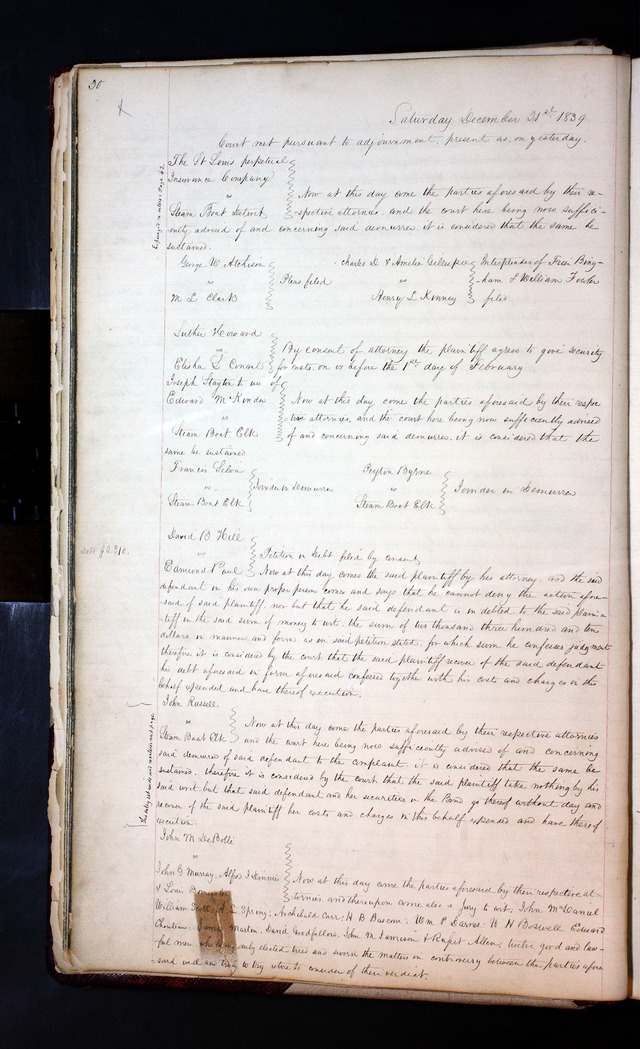 30
X
Saturday December 21st 1839
Court met pursuant to adjournment, present as, on yesterday.
The St Louis perpetual
Insurance Company
vs
Steam Boat Detroit
Now at this day come the parties aforesaid by their re-
-spective attornies, and the court here being now suffici-
ently advised of and concerning said demurrer. it is considered that the same be
sustained.
George W Atchison
vs
M. L. Clark
Pleas filed
Charles D. & Amelia Gillespie
vs
Henry L Kinney
Interpleader of
-ham & William Fowler
filed
Luther Howard
vs
Elisha L Conant
By consent of attorney the plaintiff agrees to give security
for costs, on or before the 1st day of February
Joseph Slayton to use of
Edward McKinder
vs
Steam Boat Elk
Now at this day come the parties aforesaid by their respec
tive attornies, and the court here being now sufficiently advised
of and concerning said demurrer. it is considered that the
same be sustained
Francis Selva
vs
Steam Boat Elk
Joinder in Demurrer
Peyton Byrne
vs
Steam Boat Elk
Joinder in Demurrer
Debt $2310.
David B Hill
vs
Edmund Paul
Petition in Debt filed by consent
Now at this day comes the said plaintiff by his attorney, and the said
defendant in his own proper person comes and says that he cannot deny the action afore-
said of said plaintiff. nor but that he said defendant is indebted to the said plain-
tiff in the said sum of money to wit, the sum of two thousand three hundred and ten
dollars in manner and form as in said petition stated. for which sum he confesses judgment
therefore it is considered by the court that the said plaintiff recover of the said defendant
his debt aforesaid in form aforesaid confessed together with his costs and charges in this
behalf expended and have thereof execution.
John Russell
vs
Steam Boat Elk
Now at this day come the parties aforesaid by their respective attornies
and the court here being now sufficiently advised of and concerning
said demurrer of said defendant to the complaint. it is considered that the same be
sustained. therefore it is considered by the court that the said plaintiff take nothing by his
said writ. but that said defendant and her securities in the Bond go thereof without day and
recover of the said plaintiff her costs and charges in this behalf expended and have thereof
execution
John M DeBolté
vs
John G Murray, Alfred J
& Louis
Now at this day come the parties aforesaid by their respective at-
tornies and thereupon come also a Jury to wit; John McDaniel
William Scott, L Spring, Archibald Carr, H B Bascom, Wm P Davis, W H Boswell Edward
Chouteau, James Martin. David Goodfellow, John M Jamison & Rupert Allen, twelve good and law-
ful men who being duly elected tried and sworn the matters in controversy between the parties afore
said well and truly to try retire to consider of their verdict.